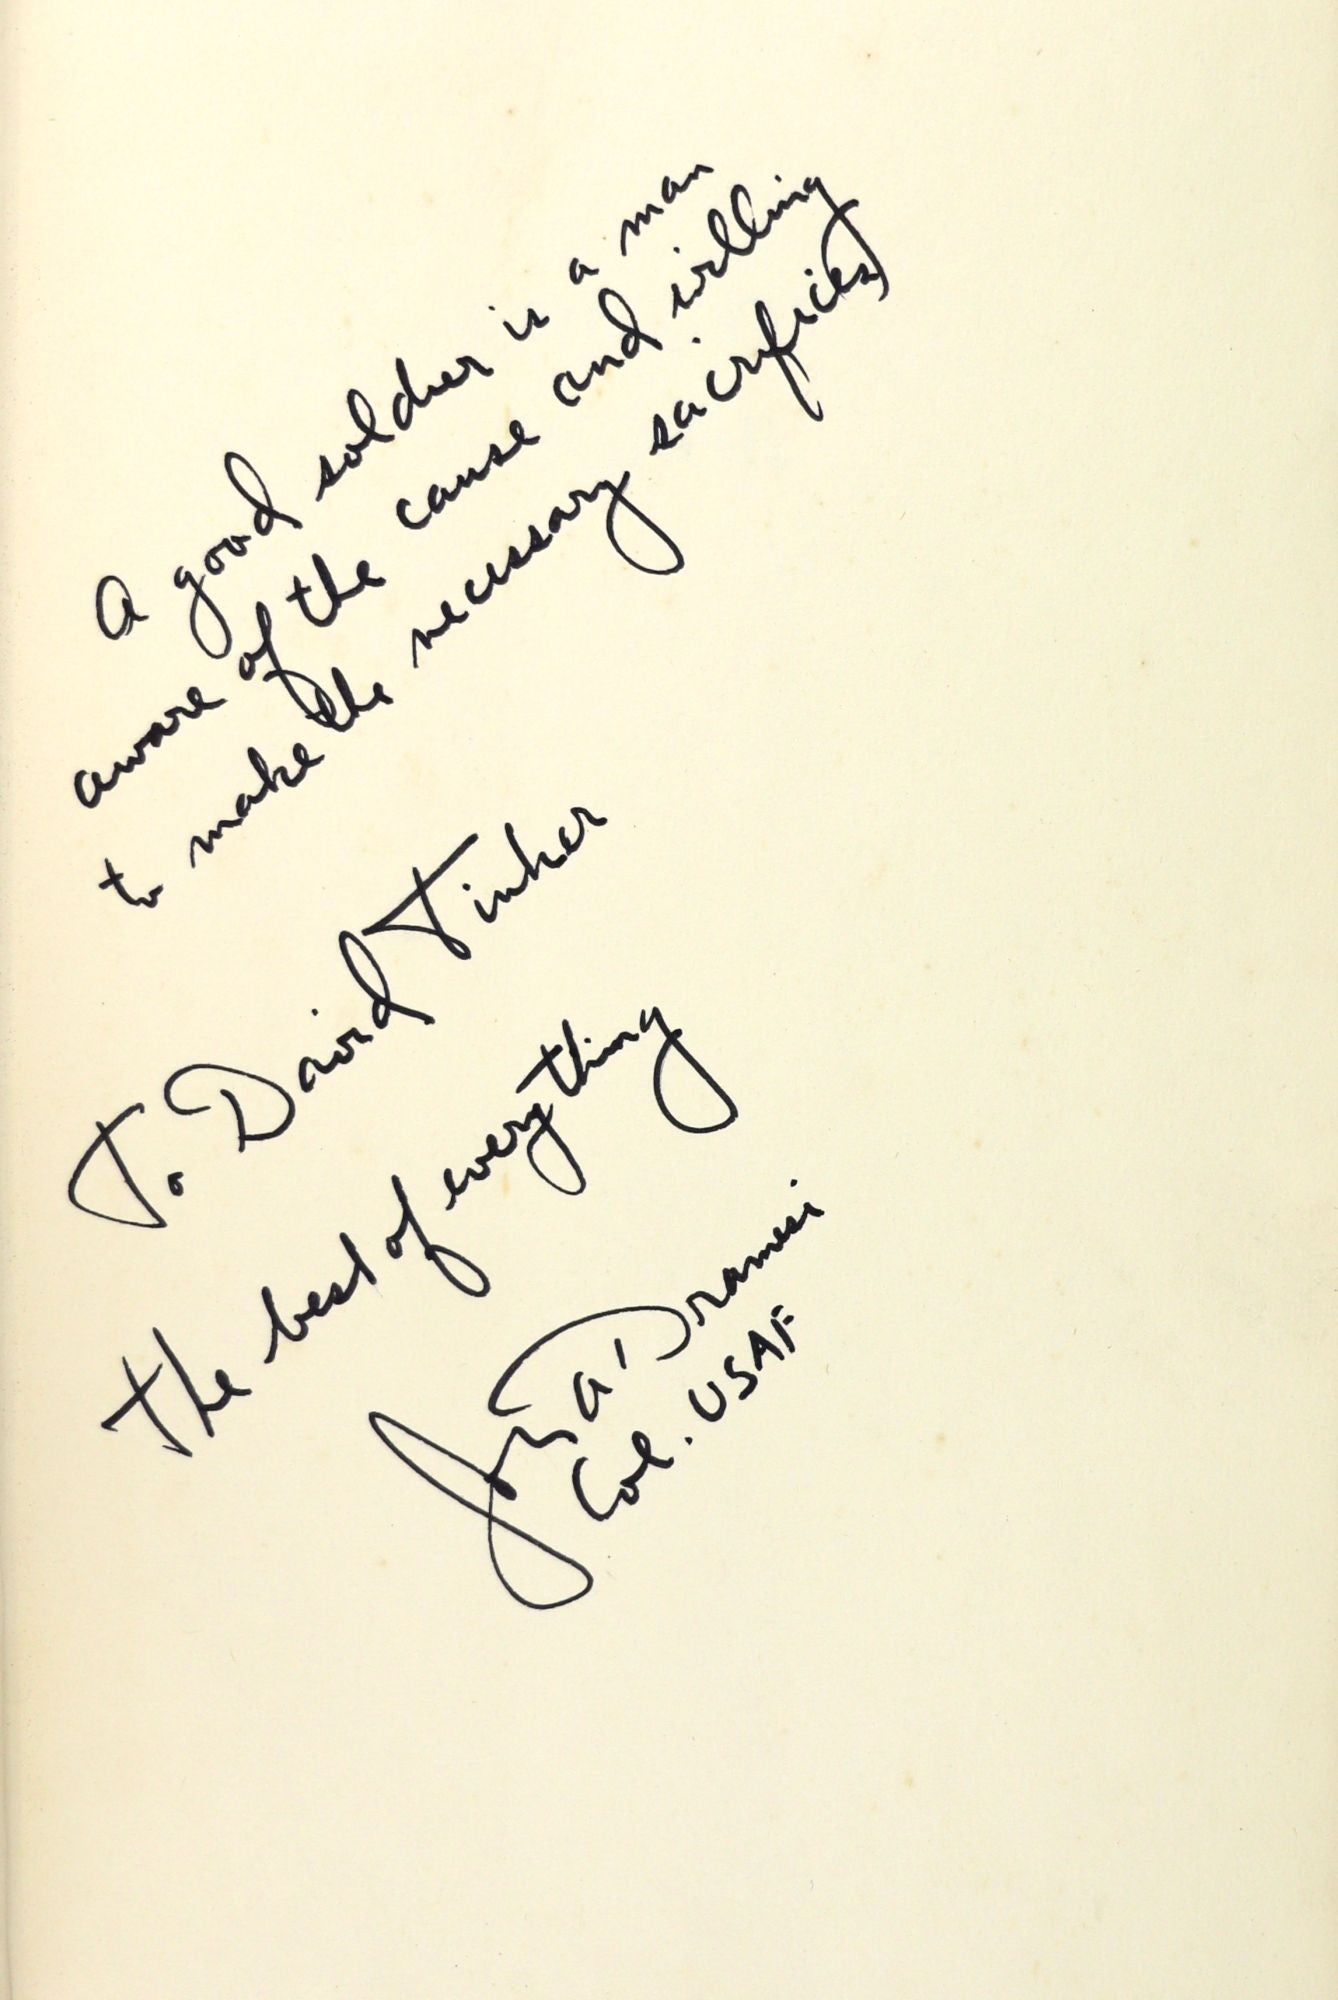 A good soldier is a man
aware of the cause and willing
to make the necessary sacrifices
To David Tinker
the best of everything
John A. Dramesi
Col. USAF